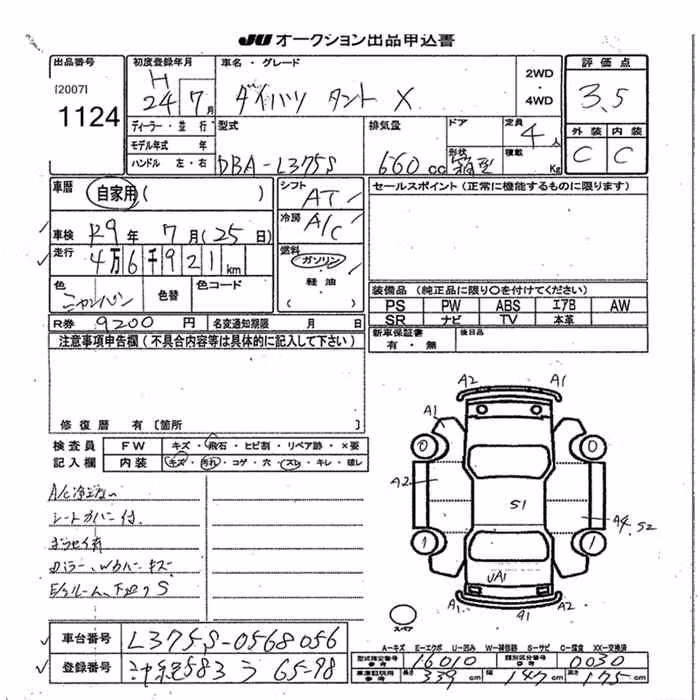 JU オークション出品申込書
出品番号
[2007]
1124
初度登録年月
H
24年 7月
車名・グレード
ダイハツ タント X
2WD
・
4WD
評価点
3.5
外装 内装
C C
ディーラー・並行
モデル年式 年
ハンドル 左・右
型式
DBA-L375S
排気量
660cc
ドア
形状
箱型
定員
4人
積載
Kg
車歴
自家用 ( )
車検 R9年 7月(25日)
走行 4万6千921km
色
色替
色コード
R券 9200円 名変通知期限 月 日
シフト AT
冷房 A/C
燃料 ガソリン
軽油
セールスポイント(正常に機能するものに限ります)
装備品(純正品に限り○を付けてください)
PS PW ABS エアB AW
SR ナビ TV 本革
新車保証書
有・無
後日品
注意事項申告欄(不具合内容等は具体的に記入して下さい)
修復歴 有〔箇所 〕
検査員 FW キズ・飛石・ヒビ割・リペア跡・×要
記入欄 内装 キズ・汚れ・コゲ・穴・スレ・キレ・破レ
A/C冷えない
シートカバー付
A2 A1
A1
0 0
A2
S1
A4 S2
1 1
UA1
A1 A1 A2
スペア
A-キズ E-エクボ U-凹み W-補修跡 S-サビ C-腐食 XX-交換済
車台番号 L375S-0568056
登録番号 沖縄 583 う 65-98
型式指定番号 参考 16010 類別区分番号 参考 0030
車庫証明用 参考 長さ 339cm 幅 147cm 高さ 175cm